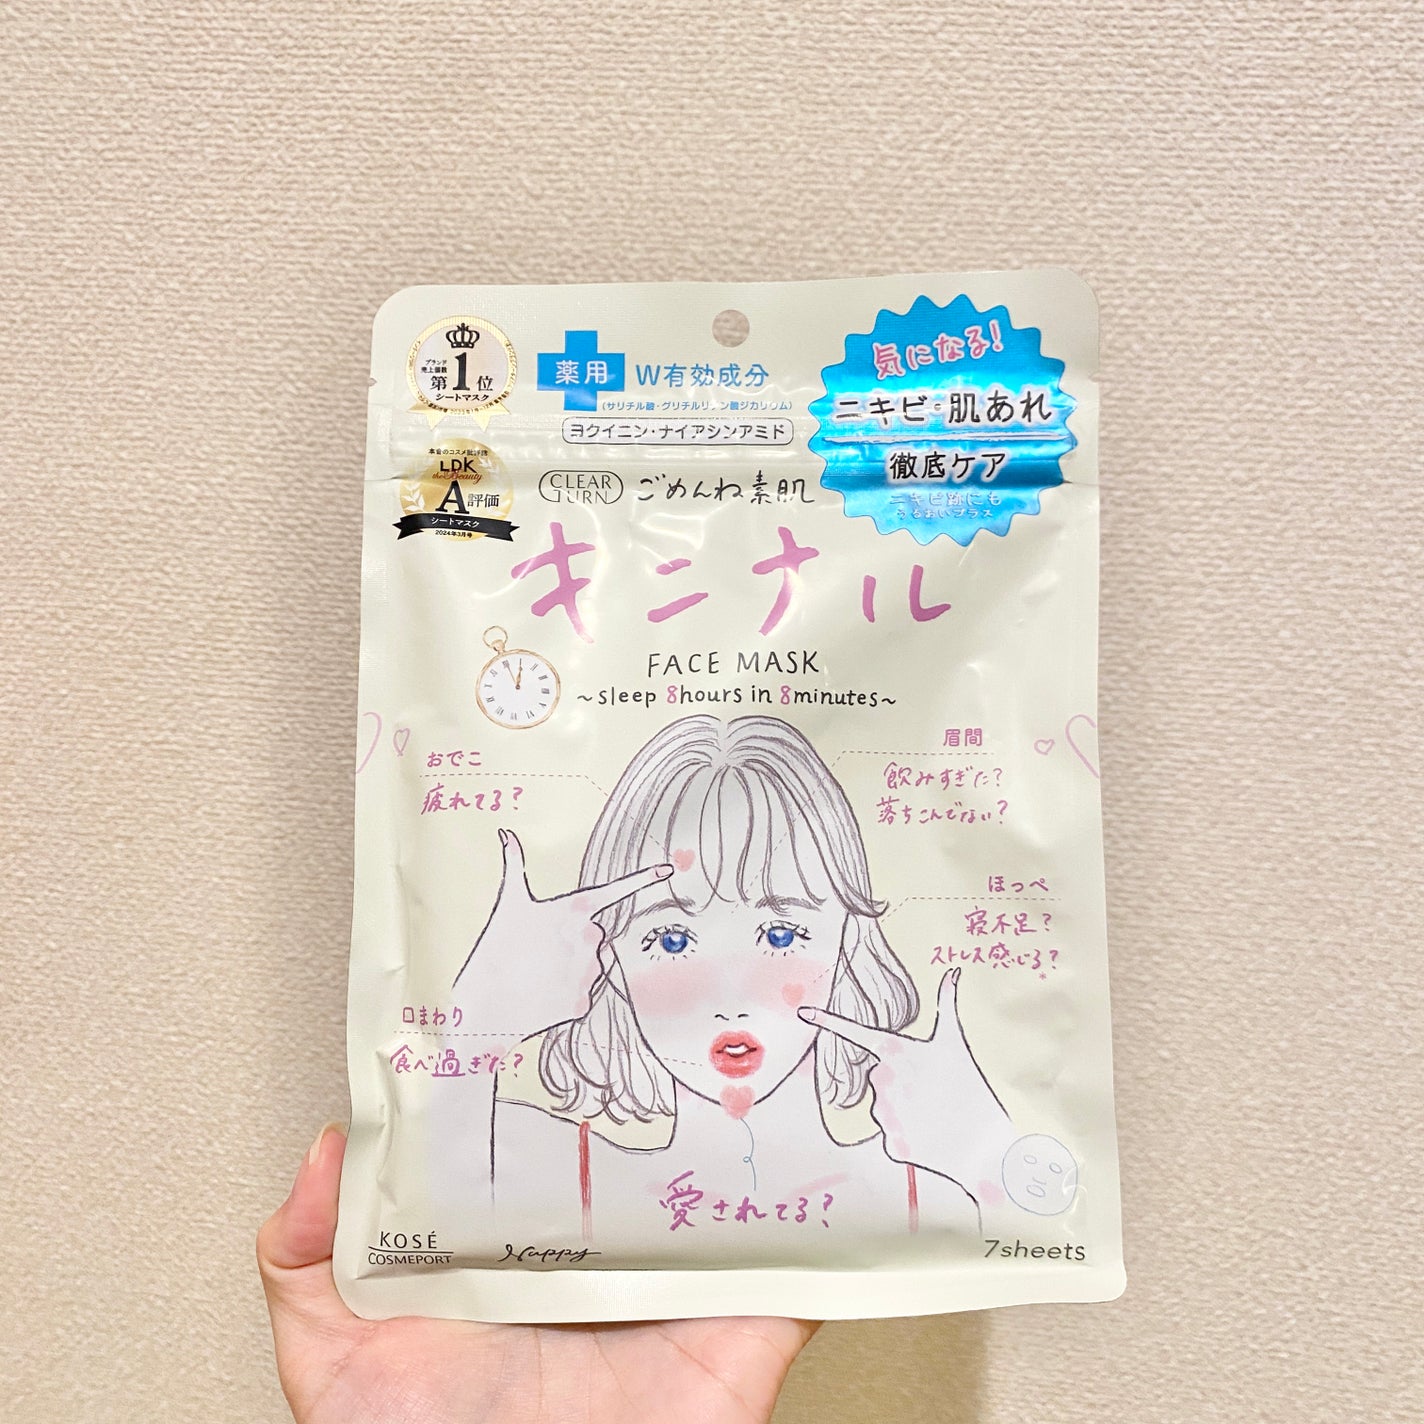 ブランド
売上個数
第1位
シートマスク
薬用
W有効成分
(サリチル酸・グリチルリチン酸ジカリウム)
ヨクイニン・ナイアシンアミド
気になる!
ニキビ・肌あれ
徹底ケア
ニキビ跡にも
うるおいプラス
本音のコスメ批評誌
LDK
the Beauty
A評価
シートマスク
2024年3月号
CLEAR
TURN
ごめんね素肌
キニナル
FACE MASK
~sleep 8hours in 8minutes~
おでこ
疲れてる?
眉間
飲みすぎた?
落ちこんでない?
ほっぺ
寝不足?
ストレス感じる?
*
口まわり
食べ過ぎた?
愛されてる?
KOSÉ
COSMEPORT
Nuppy
7sheets